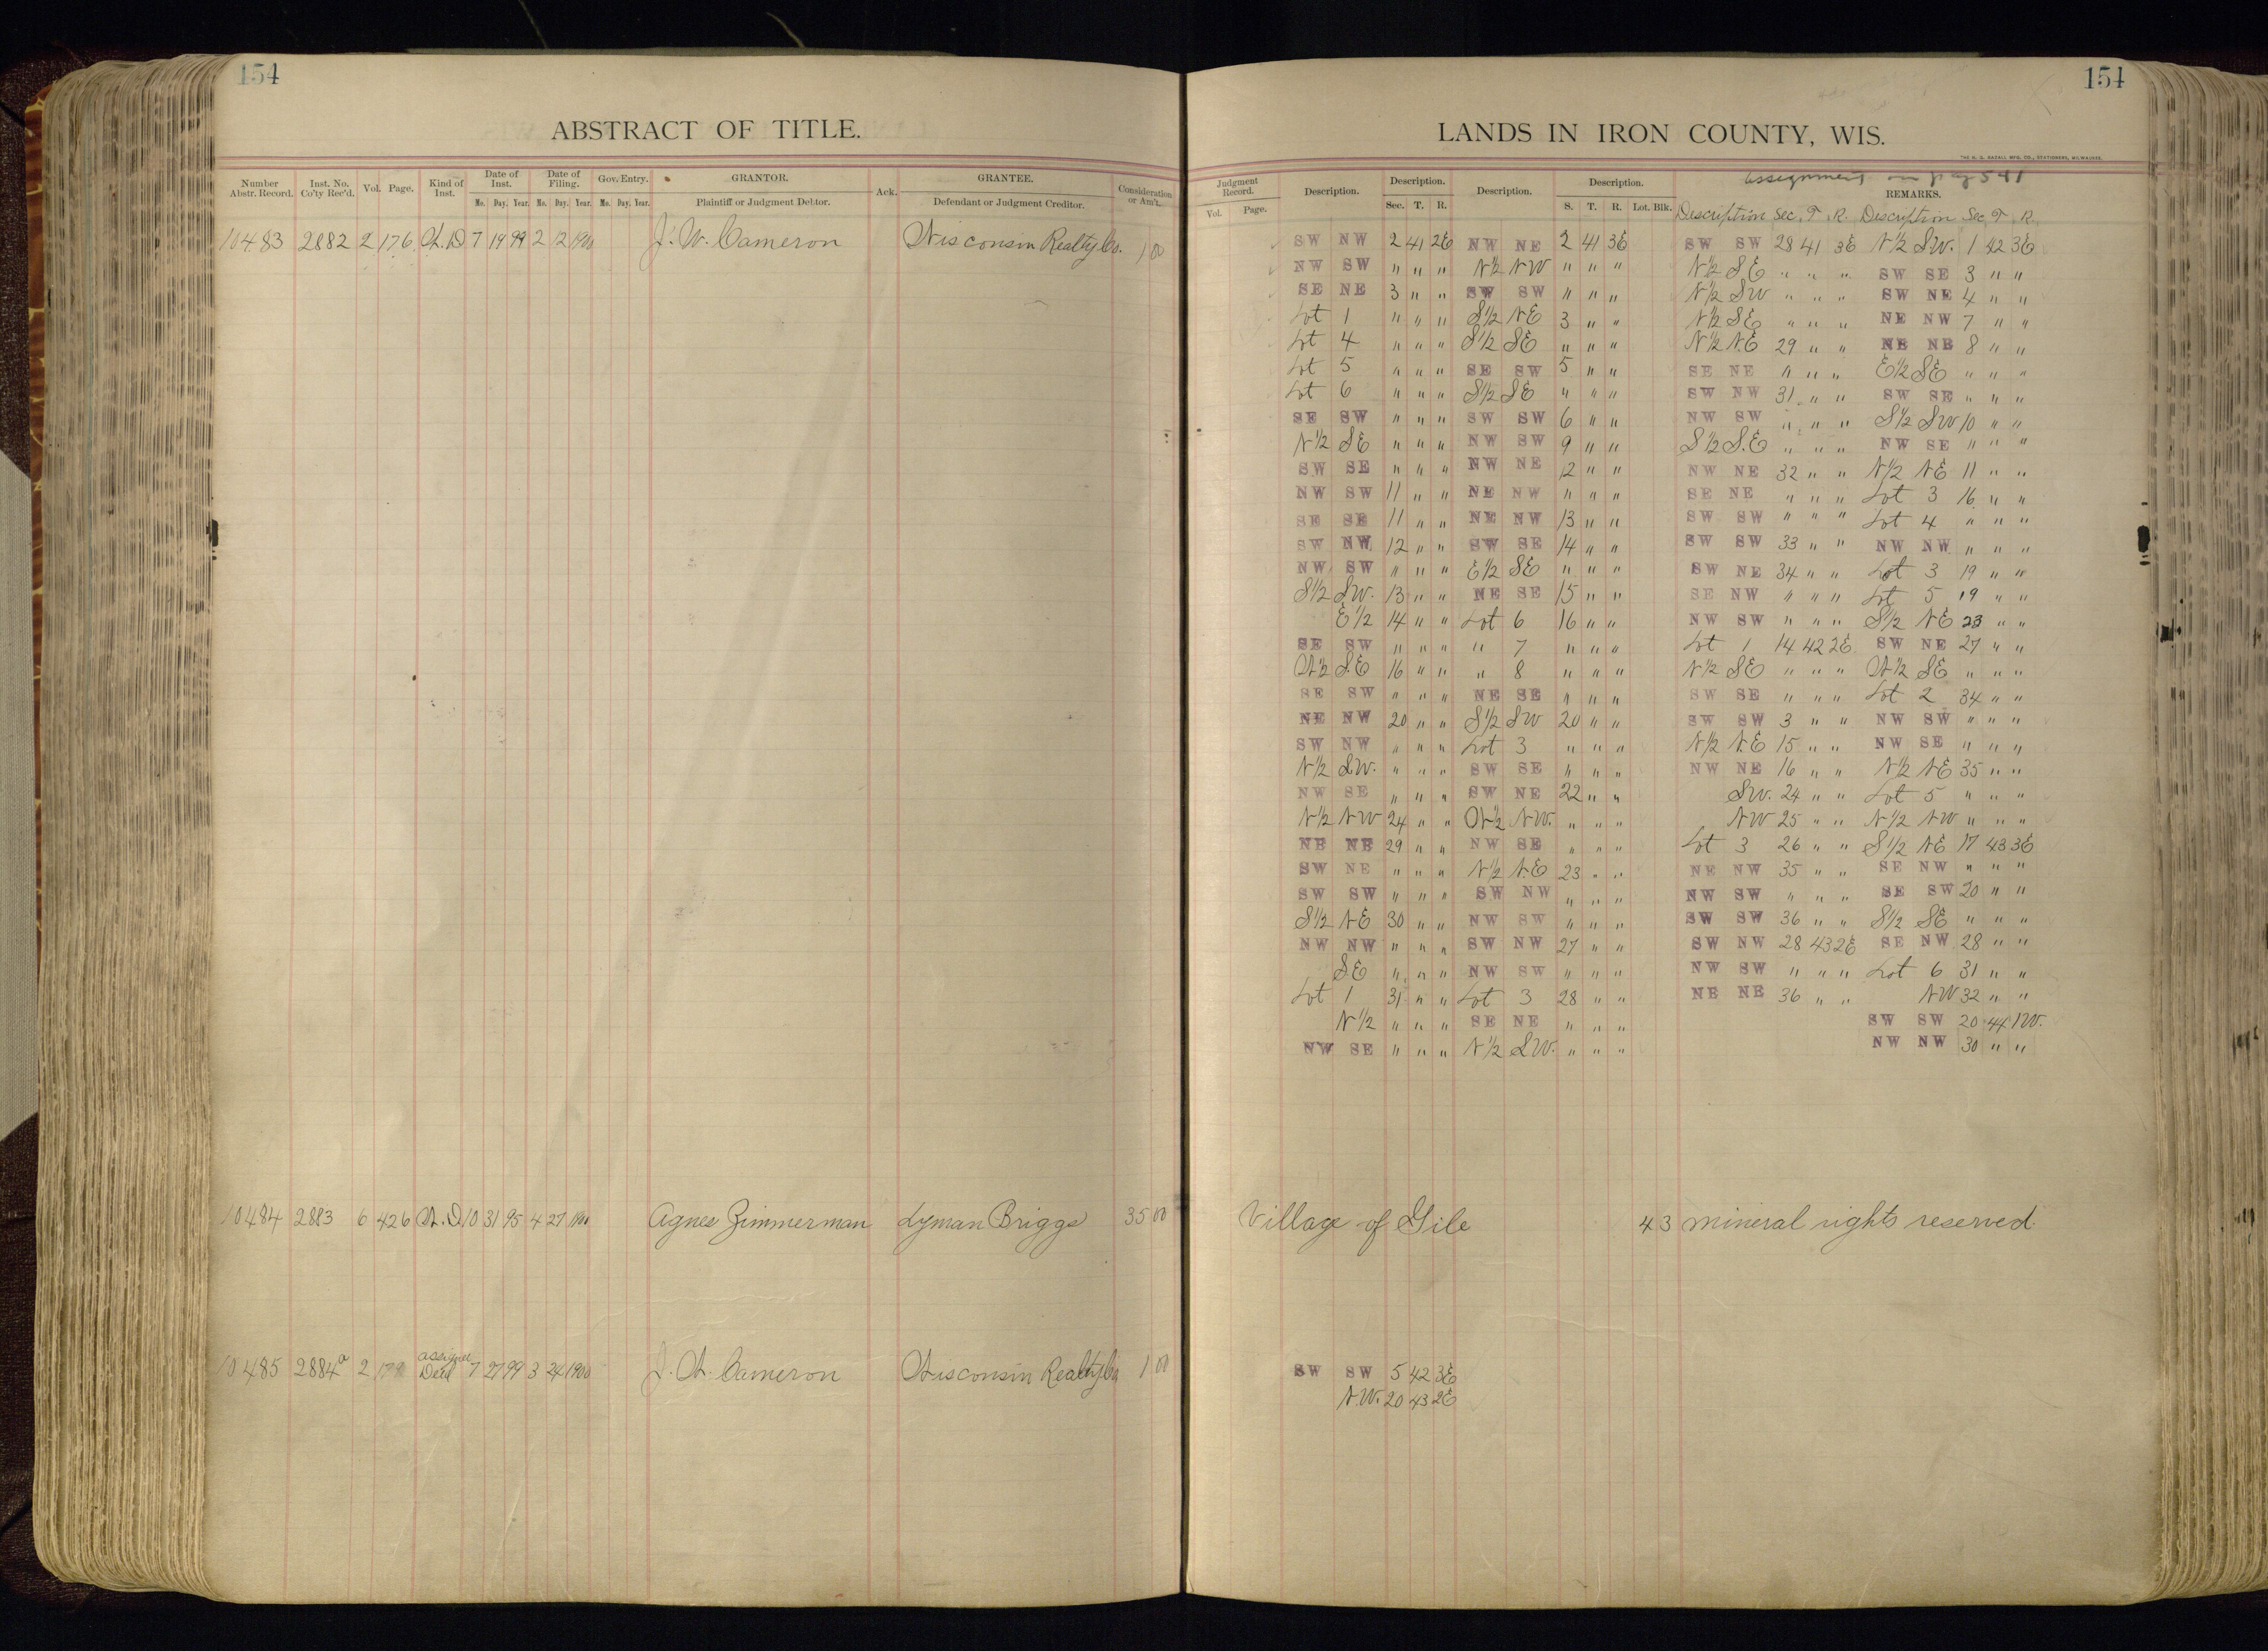 154
ABSTRACT OF TITLE.
Number Abstr. Record. Inst. No. Co'ty Rec'd. Vol. Page. Kind of Inst. Date of Inst. Mo. Day. Year. Date of Filing. Mo. Day. Year. Gov. Entry. Mo. Day. Year. GRANTOR. Plaintiff or Judgment Debtor. Ack. GRANTEE. Defendant or Judgment Creditor. Consideration or Am't.
10483 2882 2 176 W.D 7 19 99 2 2 1900 J. W. Cameron Wisconsin Realty Co. 1 00
10484 2883 6 426 W.D 10 31 95 4 27 1900 Agnes Zimmerman Lyman Briggs 35 00
10485 2884a 2 179 assignee Deed 7 27 99 3 24 1900 J. W. Cameron Wisconsin Realty Co 1 00
154
LANDS IN IRON COUNTY, WIS.
THE H. G. RAZALL MFG. CO., STATIONERS, MILWAUKEE.
assignment on pag 541
Judgment Record. Vol. Page. Description. Description. Sec. T. R. Description. Description. S. T. R. Lot. Blk. REMARKS.
Description Sec. T. R. Description Sec T. R.
SW NW 2 41 2E NW NE 2 41 3E SW SW 28 41 3E N1/2 SW. 1 42 3E
NW SW " " " N1/2 NW " " " N1/2 SE " " " SW SE 3 " "
SE NE 3 " " SW SW " " " N1/2 SW " " " SW NE 4 " "
Lot 1 " " " S1/2 NE 3 " " N1/2 SE " " " NE NW 7 " "
Lot 4 " " " S1/2 SE " " " N1/2 NE 29 " " NE NE 8 " "
Lot 5 " " " SE SW 5 " " SE NE " " " E1/2 SE " " "
Lot 6 " " " S1/2 SE " " " SW NW 31 " " SW SE " " "
SE SW " " " SW SW 6 " " NW SW " " " S1/2 SW 10 " "
N1/2 SE " " " NW SW 9 " " S1/2 S.E " " " NW SE " " "
SW SE " " " NW NE 12 " " NW NE 32 " " N1/2 NE 11 " "
NW SW 11 " " NE NW " " " SE NE " " " Lot 3 16 " "
SE SE 11 " " NE NW 13 " " SW SW " " " Lot 4 " " "
SW NW 12 " " SW SE 14 " " SW SW 33 " " NW NW " " "
NW SW " " " E1/2 SE " " " SW NE 34 " " Lot 3 19 " "
S1/2 SW. 13 " " NE SE 15 " " SE NW " " " Lot 5 19 " "
E1/2 14 " " Lot 6 16 " " NW SW " " " S1/2 NE 23 " "
SE SW " " " " 7 " " " Lot 1 14 42 2E SW NE 27 " "
W1/2 S.E 16 " " " 8 " " " N1/2 SE " " " W1/2 SE " " "
SE SW " " " NE SE " " " SW SE " " " Lot 2 34 " "
NE NW 20 " " S1/2 SW 20 " " SW SW 3 " " NW SW " " "
SW NW " " " Lot 3 " " " N1/2 N.E 15 " " NW SE " " "
N1/2 SW. " " " SW SE " " " NW NE 16 " " N1/2 NE 35 " "
NW SE " " " SW NE 22 " " SW. 24 " " Lot 5 " " "
N1/2 NW 24 " " W1/2 NW. " " " NW 25 " " N1/2 NW " " "
NE NE 29 " " NW SE " " " Lot 3 26 " " S1/2 NE 17 43 3E
SW NE " " " N1/2 NE 23 " " NE NW 35 " " SE NW " " "
SW SW " " " SW NW " " " NW SW " " " SE SW 20 " "
S1/2 NE 30 " " NW SW " " " SW SW 36 " " S1/2 SE " " "
NW NW " " " SW NW 27 " " SW NW 28 43 2E SE NW 28 " "
S.E " " " NW SW " " " NW SW " " " Lot 6 31 " "
Lot 1 31 " " Lot 3 28 " " NE NE 36 " " NW 32 " "
N1/2 " " " SE NE " " " SW SW 20 44 1W.
NW SE " " " N1/2 SW. " " " NW NW 30 " "
Village of Gile 4 3 mineral rights reserved
SW SW 5 42 3E
N.W. 20 43 2E